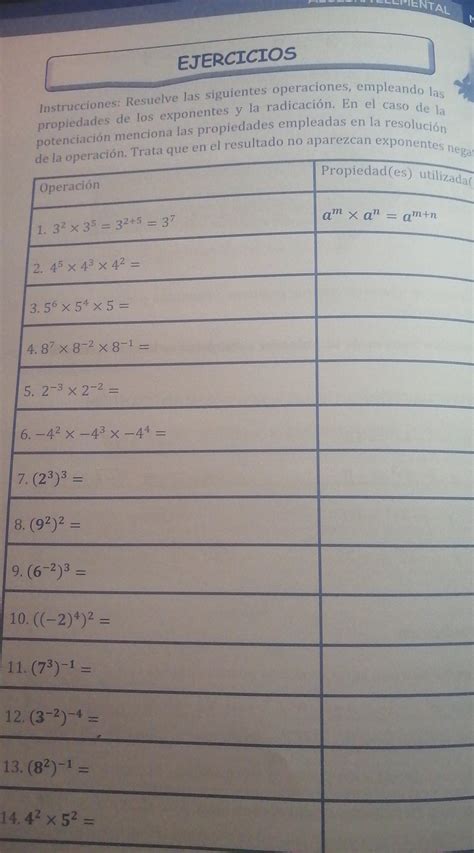 EJERCICIOS
Instrucciones: Resuelve las siguientes operaciones, empleando las
propiedades de los exponentes y la radicación. En el caso de la
potenciación menciona las propiedades empleadas en la resolución
de la operación. Trata que en el resultado no aparezcan exponentes nega
Operación
Propiedad(es) utilizada(
1. 3² × 3⁵ = 3²⁺⁵ = 3⁷
aᵐ × aⁿ = aᵐ⁺ⁿ
2. 4⁵ × 4³ × 4² =
3. 5⁶ × 5⁴ × 5 =
4. 8⁷ × 8⁻² × 8⁻¹ =
5. 2⁻³ × 2⁻² =
6. −4² × −4³ × −4⁴ =
7. (2³)³ =
8. (9²)² =
9. (6⁻²)³ =
10. ((−2)⁴)² =
11. (7³)⁻¹ =
12. (3⁻²)⁻⁴ =
13. (8²)⁻¹ =
14. 4² × 5² =